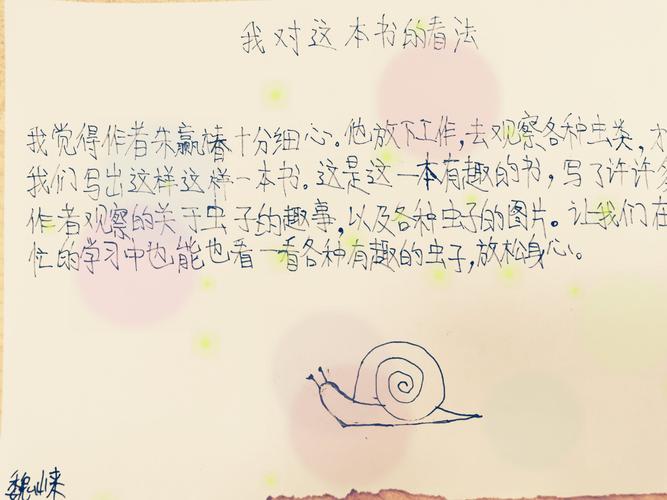 我对这本书的看法
我觉得作者朱赢椿十分细心。他放下工作,去观察各种虫类,才
我们写出这样这样一本书。这是这一本有趣的书,写了许许多
作者观察的关于虫子的趣事,以及各种虫子的图片。让我们在
忙的学习中也能也看一看各种有趣的虫子,放松身心。
魏